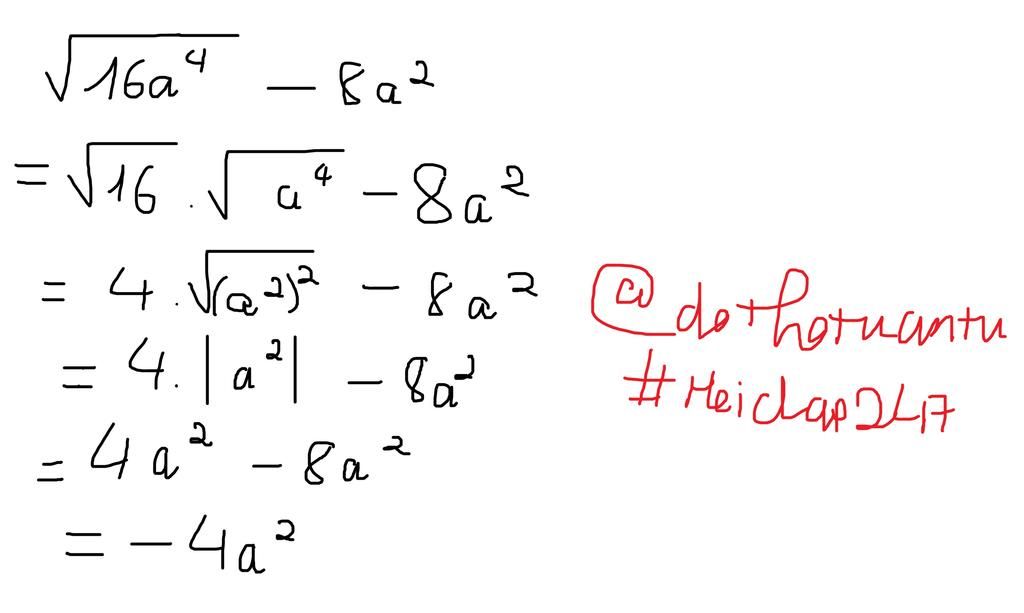 √16a⁴ - 8a²
= √16 . √a⁴ - 8a²
= 4 . √(a²)² - 8a²
= 4 . |a²| - 8a²
= 4a² - 8a²
= - 4a²
@dothotuantu
#Heiclap247